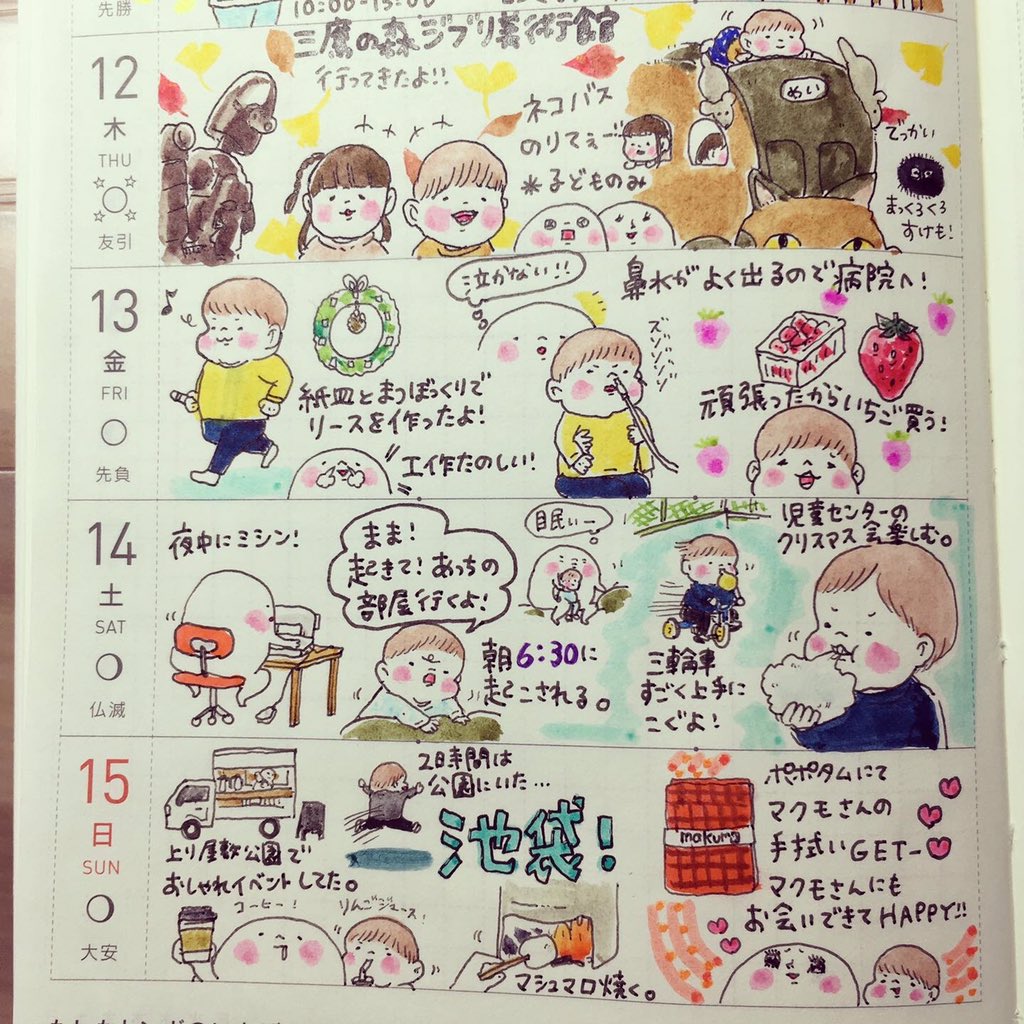 先勝
10:00-15:00
12
木
THU
友引
三鷹の森ジブリ美術館
行ってきたよ!!
ネコバス
のりてぇー
※子どものみ
めい
でっかい
まっくろくろ
すけも!
13
金
FRI
先負
紙皿とまつぼっくりで
リースを作ったよ!
工作たのしい!
泣かない!!
鼻水がよく出るので病院へ!
ズゾゾゾ
頑張ったからいちご買う!
14
土
SAT
仏滅
夜中にミシン!
まま!
起きて!あっちの
部屋行くよ!
朝6:30に
起こされる。
目民いー
三輪車
すごく上手に
こぐよ!
児童センターの
クリスマス会楽しむ。
15
日
SUN
大安
上り屋敷公園で
おしゃれイベントしてた。
2時間は
公園にいた…
池袋!
コーヒー!
りんごジュース!
マシュマロ焼く。
makumo
ポポタムにて
マクモさんの
手拭いGET-
マクモさんにも
お会いできてHAPPY!!